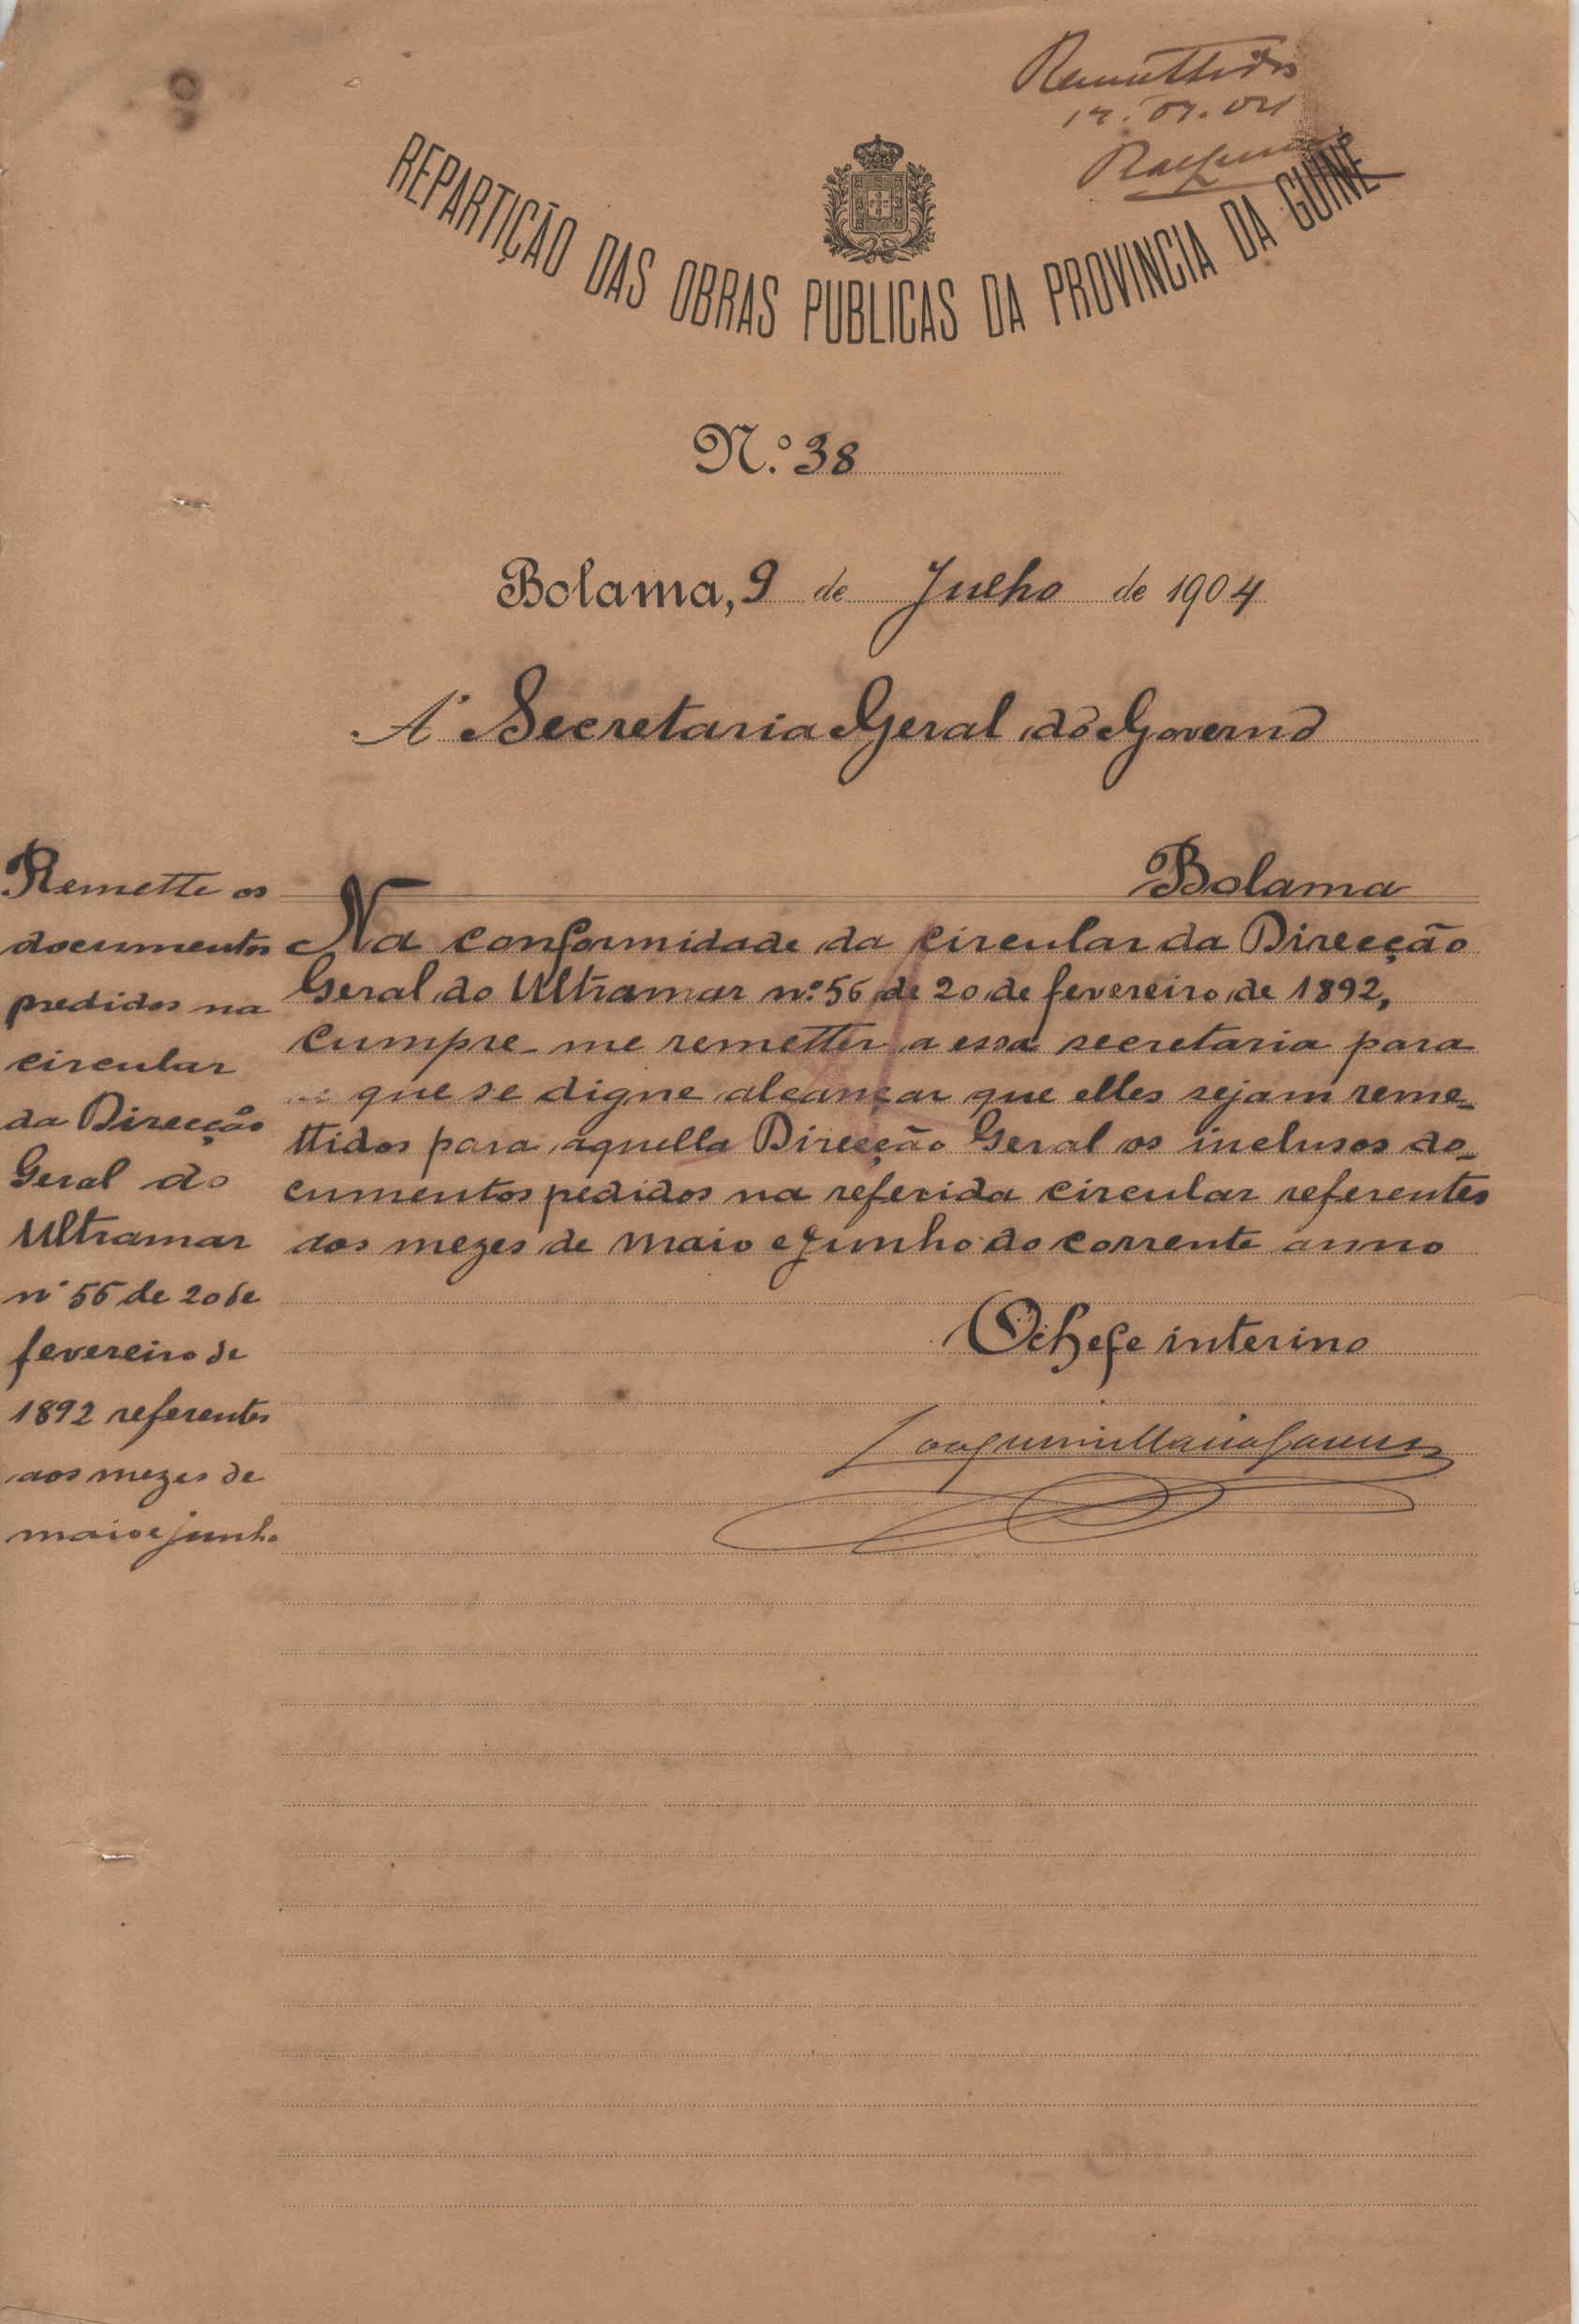 Remettidos
REPARTIÇÃO DAS OBRAS PUBLICAS DA PROVINCIA DA GUINÉ
N.º 38
Bolama, 9 de Julho de 1904
A' Secretaria Geral do Governo
Bolama
Remette os
documentos
predidos na
circular
da Direcção
Geral do
Ultramar
nº 56 de 20 de
fevereiro de
1892 referentes
aos mezes de
maio e junho
Na conformidade da circular da Direcção
Geral do Ultramar nº 56 de 20 de fevereiro de 1892,
cumpre-me remetter a essa secretaria para
que se digne alcançar que elles sejam reme-
ttidos para aquella Direcção Geral os inclusos do-
cumentos pedidos na referida circular referentes
aos mezes de maio e junho do corrente anno
O chefe interino
Joaquim Maria